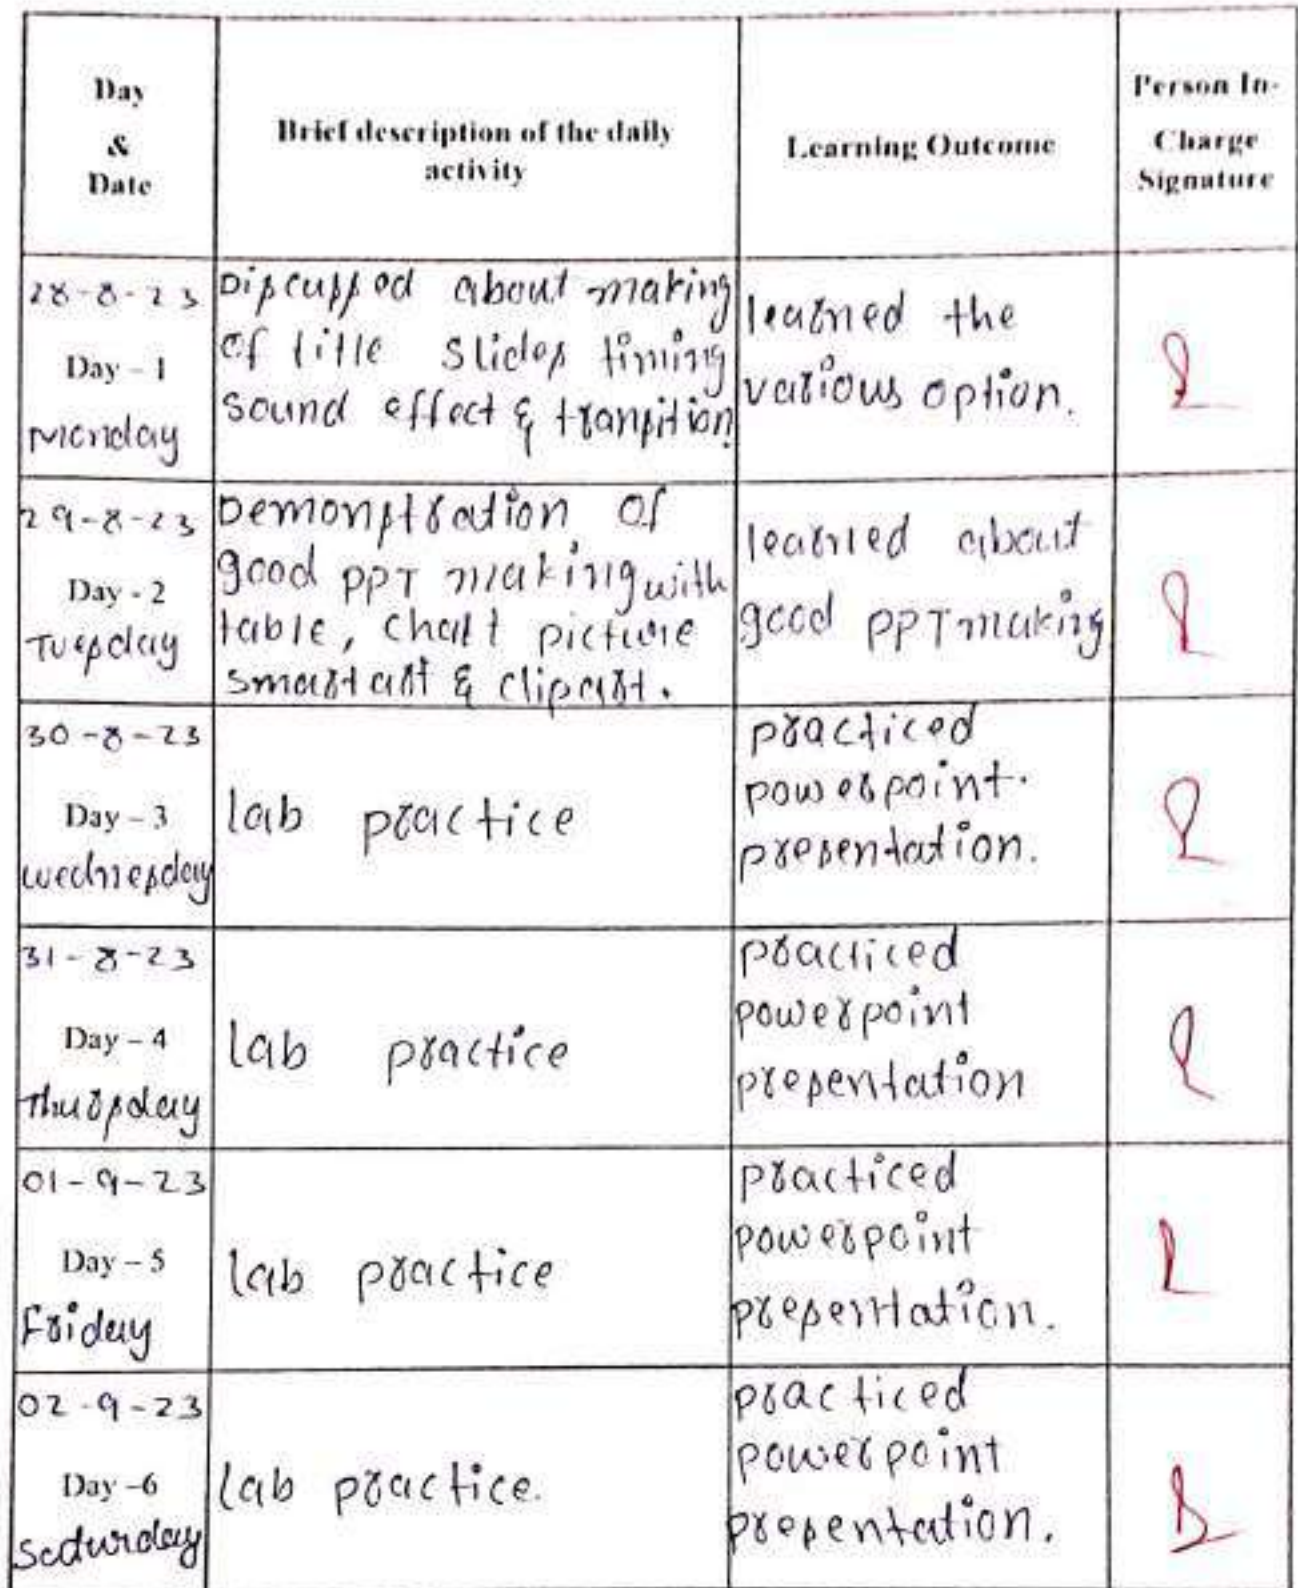 Day
&
Date
Brief description of the daily
activity
Learning Outcome
Person In-
Charge
Signature
28-8-23
Day - 1
Monday
Discussed about making
of title slides timing
sound effect & transition
learned the
various option.
29-8-23
Day - 2
Tuesday
Demonstration of
good PPT making with
table, chart picture
smart art & clipart.
learned about
good PPT making
30-8-23
Day - 3
Wednesday
lab practice
practiced
powerpoint.
presentation.
31-8-23
Day - 4
Thursday
lab practice
practiced
powerpoint
presentation
01-9-23
Day - 5
Friday
lab practice
practiced
powerpoint
presentation.
02-9-23
Day -6
Saturday
lab practice.
practiced
powerpoint
presentation.